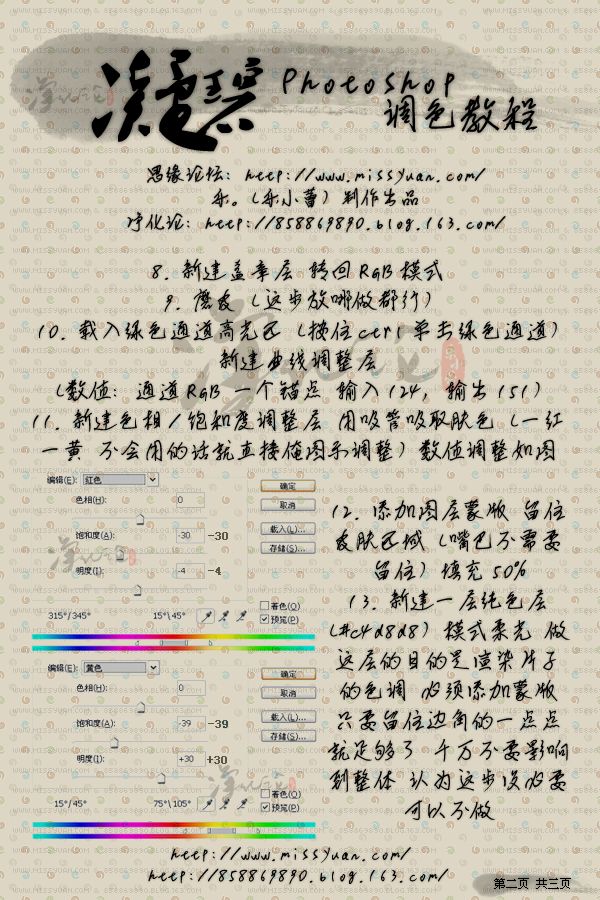 Photoshop
调色教程
思缘论坛：http://www.missyuan.com/
乐。（乐小蕾）制作出品
http://858869890.blog.163.com/
8. 新建盖章层 转回RGB模式
9. 磨皮（这步放哪做都行）
10. 载入绿色通道高光区（按住ctrl单击绿色通道）
新建曲线调整层
（数值：通道RGB 一个锚点 输入124，输出151）
11. 新建色相/饱和度调整层 用吸管吸取肤色（一红
一黄 不会用的话就直接俺图示调整）数值调整如图
编辑(E): 红色
确定
色相(H): 0
取消
饱和度(A): -30 -30
载入(L)...
存储(S)...
明度(I): -4 -4
着色(O)
315°/345° 15°\45°
预览(P)
编辑(E): 黄色
确定
色相(H): 0
取消
饱和度(A): -39 -39
载入(L)...
存储(S)...
明度(I): +30 +30
着色(O)
15°/45° 75°\105°
预览(P)
12. 添加图层蒙版 留住
皮肤区域（嘴巴不需要
留住）填充50%
13. 新建一层纯色层
(#c4d8d8) 模式柔光 做
这层的目的是渲染片子
的色调 必须添加蒙版
只要留住边角的一点点
就足够了 千万不要影响
到整体 认为这步没必要
可以不做
http://www.missyuan.com/
http://858869890.blog.163.com/
第二页 共三页